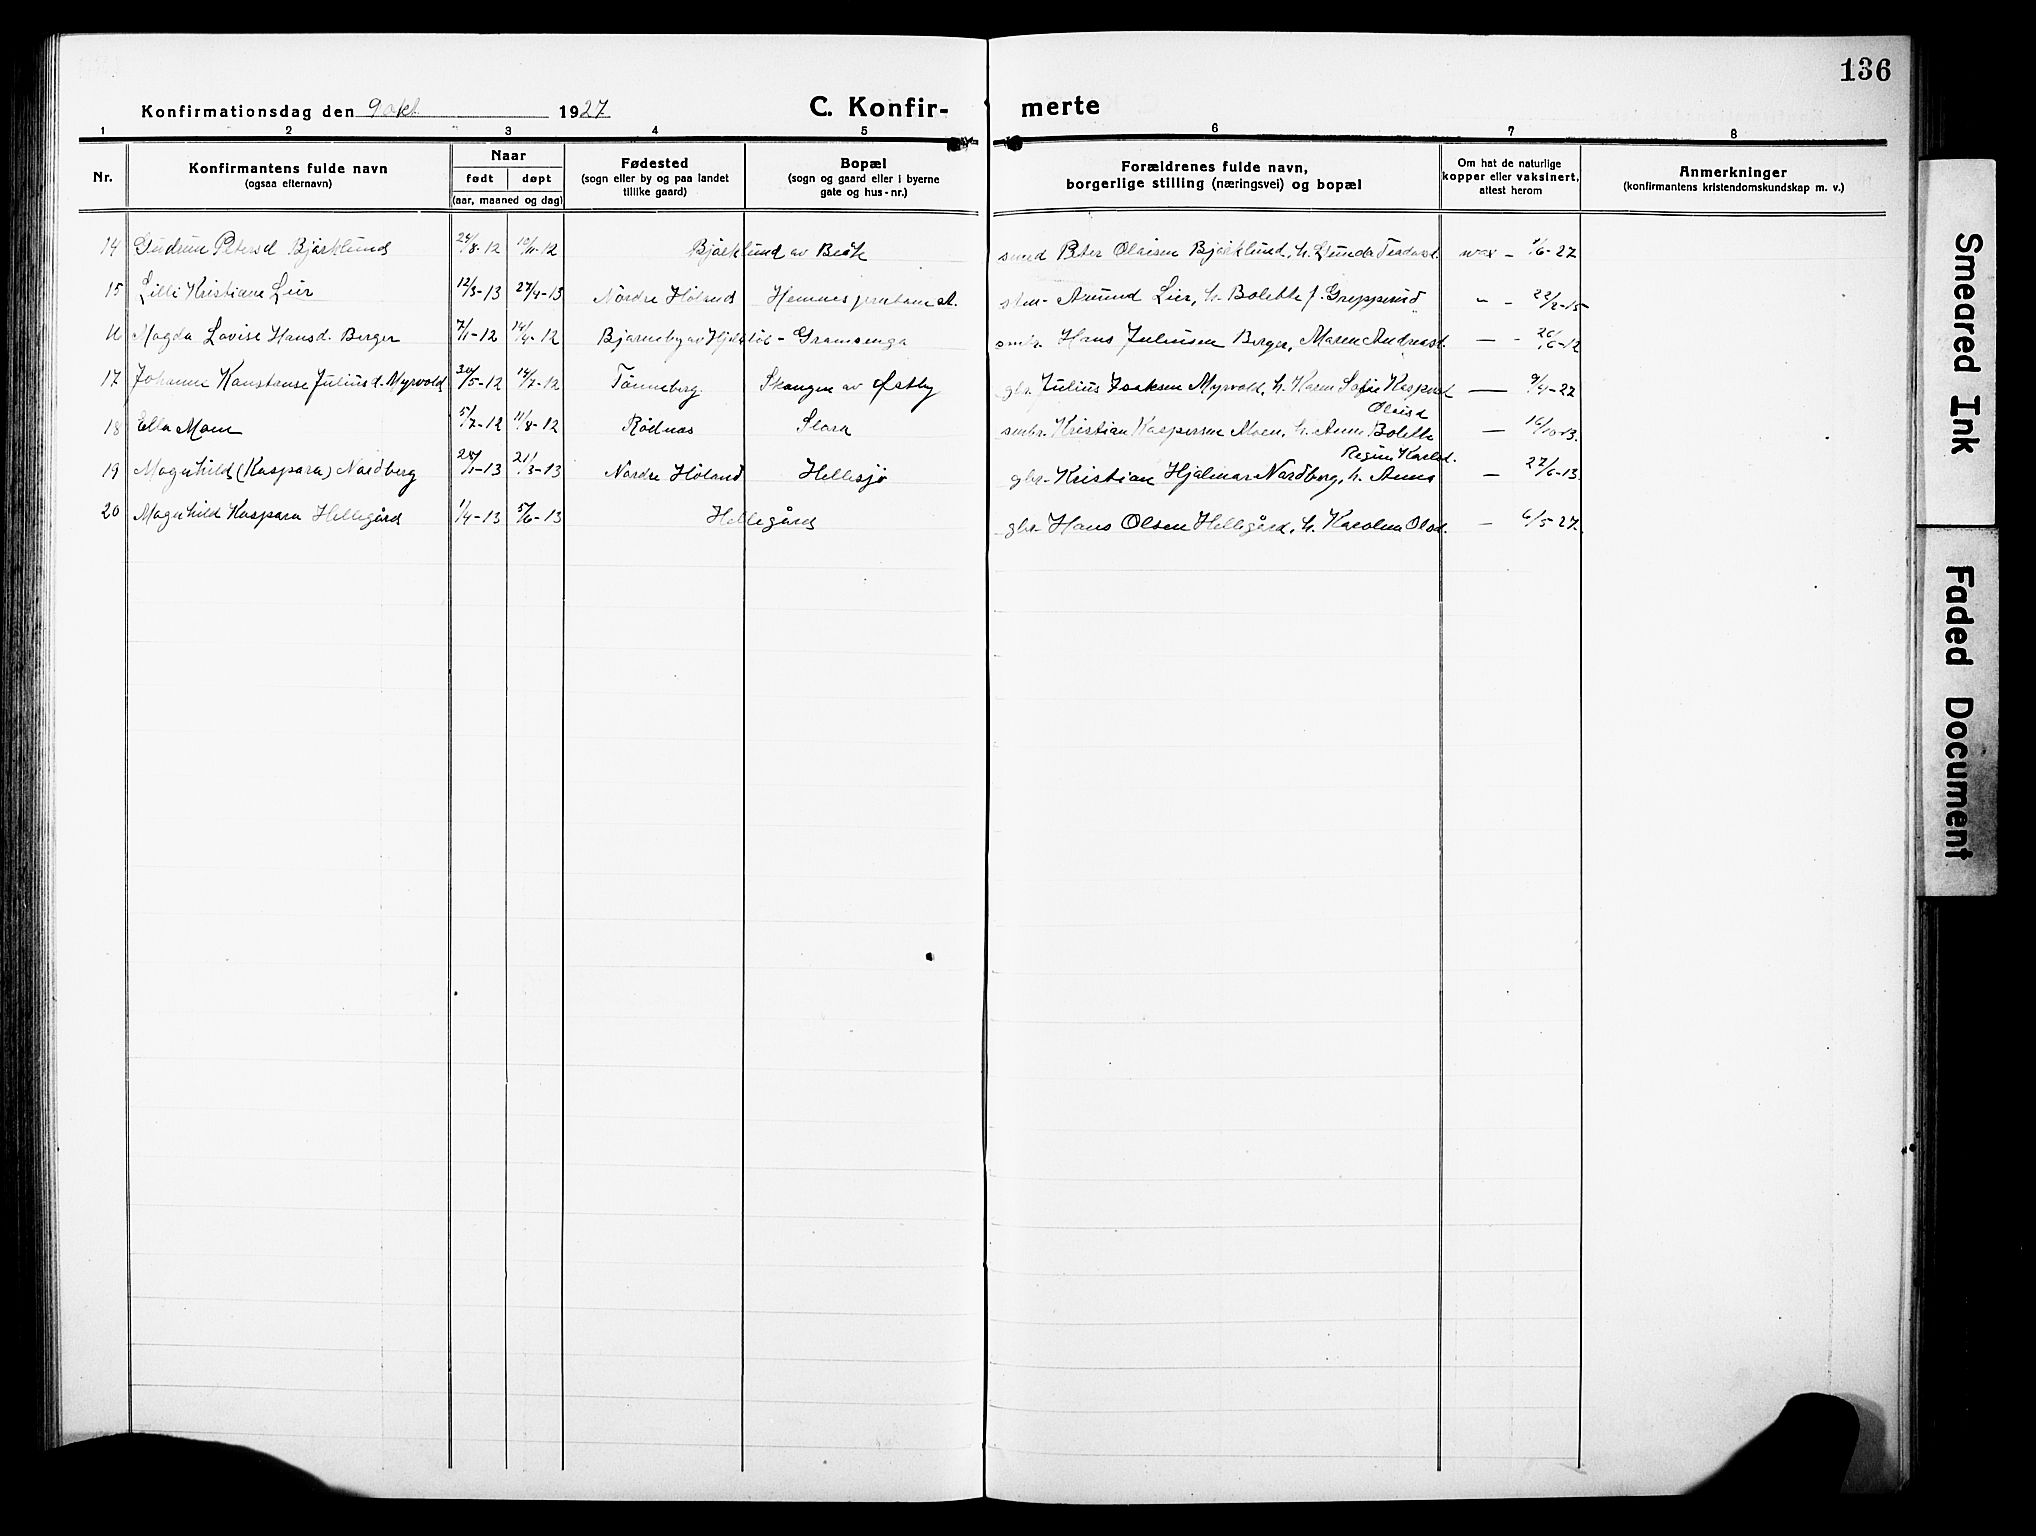 136
Konfirmationsdag den 9 okt 1927 C. Konfir- merte
1 2 3 4 5 6 7 8
Nr. Konfirmantens fulde navn (ogsaa efternavn) Naar født døpt (aar, maaned og dag) Fødested (sogn eller by og paa landet tillike gaard) Bopæl (sogn og gaard eller i byerne gate og hus-nr.) Forældrenes fulde navn, borgerlige stilling (næringsvei) og bopæl Om hat de naturlige kopper eller vaksinert, attest herom Anmerkninger (konfirmantens kristendomskundskap m. v.)
14 Gudrun Petersd Bjørklund 24/8-12 10/11-12 Bjørklund av smed Peter Olaisen Bjørklund, h. vax - 1/6-27
15 Lilli Kristiane Lier 12/3-13 27/4-13 Nordre Høland Hemnes Amund Lier, h. Bolette f. Greppsrud " - 22/2-15
16 Magda Lovise Hansd. Berger 7/1-12 14/4-12 Bjørneby av - smbr. Hans Juliusen Berger, Maren Andreasd. - - 26/6-12
17 Johanne Konstanse Juliusd. Myrvold 30/5-12 14/7-12 Tønneberg Skaugen av Østby gbr. Julius Isaksen Myrvold, h. Karen Sofie Kaspersd - 9/4-27
18 Ella Moen 5/7-12 11/8-12 Rødnæs Slora smbr. Kristian Kaspersen Moen, h. Anne Bolette Olaisd - 16/10-13.
19 Magnhild (Kaspara) Nordberg 28/1-13 21/3-13 Nordre Høland Hellesjø gbr. Kristian Hjalmar Nordberg, h. Anna Regine Karlsd. - 27/6-13.
20 Magnhild Kaspara Hellegård 1/4-13 5/6-13 Hellegård gbr. Hans Olsen Hellegård, h. Karoline Olsd. - 6/5-27.
Smeared Ink
Faded Document